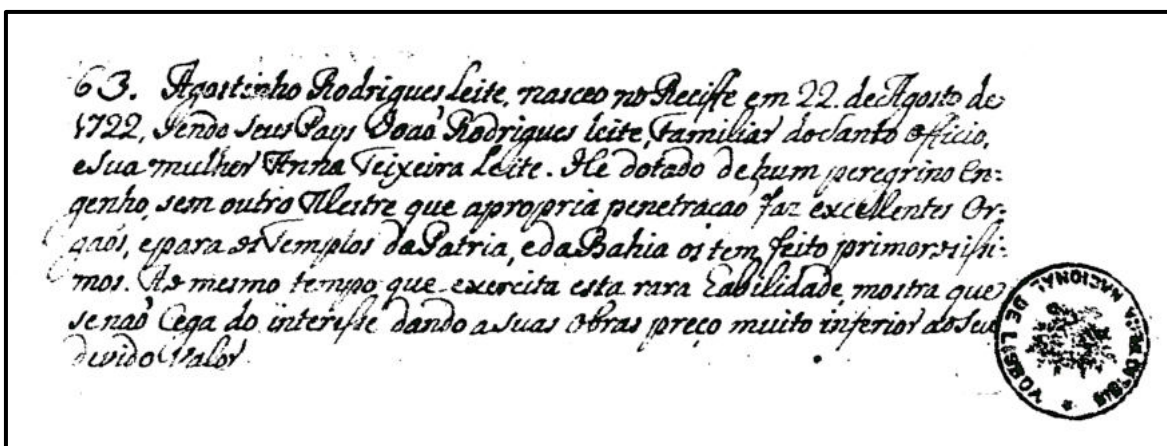 63. Agostinho Rodrigues Leite, nasceo no Reciffe em 22. de Agosto de
1722, sendo seus Pays Joaõ Rodrigues leite, Familiar do Santo officio,
e sua mulher Anna Teixeira Leite. He dotado de hum peregrino En=
genho, sem outro Mestre que a propria penetracaõ faz excellentes Or=
gaõs, e para os Templos da Patria, e da Bahia os tem feito primorosissi=
mos. Ao mesmo tempo que exercita esta rara habilidade, mostra que
se naõ Cega do interesse dando a suas obras preço muito inferior ao seu
devido Valor.
NACIONAL DE LISBOA